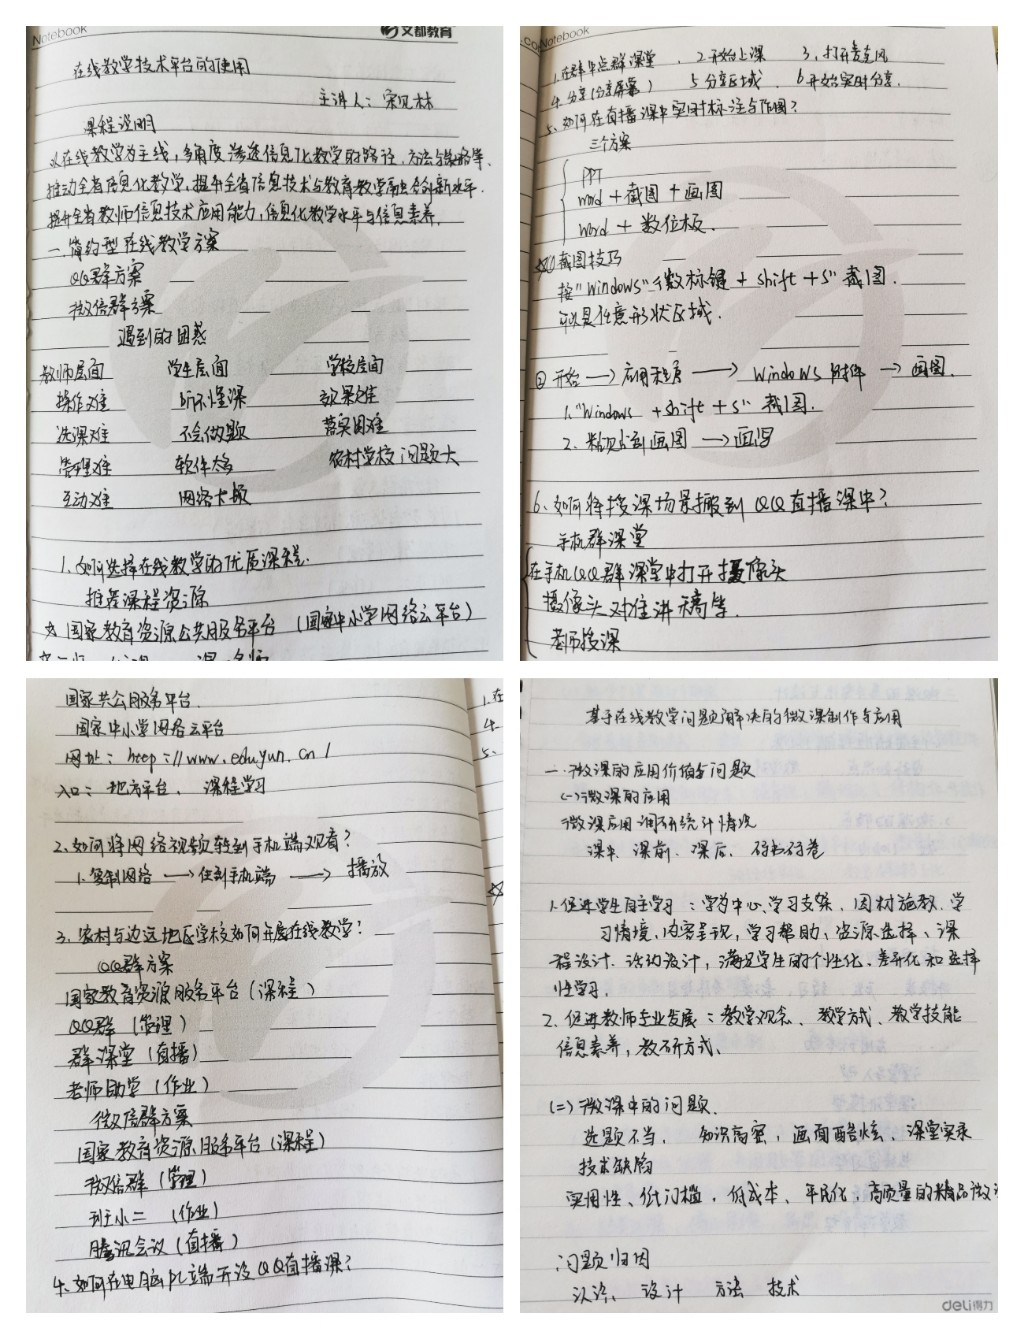 Notebook
文都教育
在线教学技术平台的使用
主讲人：宋见林
课程说明
以在线教学为主线，多角度渗透信息化教学的路径、方法与策略等、
推动全省信息化教学，提升全省信息技术与教育教学融合创新水平.
提升全省教师信息技术应用能力，信息化教学水平与信息素养。
一、简约型在线教学方案
QQ群方案
微信群方案
遇到的困惑
教师层面 学生层面 学校层面
操作难 听不懂课 效果难
选课难 不会做题 落实困难
管理难 软件太多 农村学校问题大
互动难 网络卡顿
1、如何选择在线教学的优质课程.
推荐课程资源
国家教育资源公共服务平台 （国家中小学网络云平台）
Notebook
1.在群中点群课堂. 2.开始上课 3、打开麦克风
4.分享(分享屏幕) 5 分享区域. 6开始实时分享.
5、如何在直播课中实时标注与作图？
三个方案
PPT
word + 截图 + 画图
word + 数位板.
①截图技巧
按"Windows"个数标键 + shift + S" 截图.
任意形状区域.
② 开始 → 应用程序 → Windows 附件 → 画图.
1."Windows + shift + S" 截图.
2、粘贴到画图 → 画写
6、如何将授课场景搬到QQ直播课中？
手机群课堂
在手机QQ群课堂中打开摄像头
摄像头对准讲稿等.
老师授课
国家公共服务平台.
国家中小学网络云平台
网址：http://www.eduyun.cn/
入口：地方平台、课程学习
2、如何将网络视频转到手机端观看？
1.复制网络 → 住到手机端 → 播放
3、农村与边远地区学校如何开展在线教学？
QQ群方案
国家教育资源服务平台（课程）
QQ群（管理）
群课堂（直播）
老师助学（作业）
微信群方案
国家教育资源服务平台（课程）
微信群（管理）
班小二（作业）
腾讯会议（直播）
4、如何在电脑PC端开设QQ直播课？
基于在线教学问题解决的微课制作与应用
一.微课的应用价值与问题
(一)微课的应用
微课应用调研统计情况
课中、课前、课后、
1.促进学生自主学习：学为中心、学习支架、因材施教、学
习情境、内容呈现，学习帮助、资源选择、课
程设计、活动设计，满足学生的个性化、差异化和选择
性学习.
2、促进教师专业发展：教学观念、教学方式、教学技能
信息素养，教研方式、
(二)微课中的问题.
选题不当、知识高密，画面酷炫、课堂实录
技术缺陷
实用性、低门槛，低成本、平民化、高质量的精品微
问题归因
认论、设计 方法 技术
deli得力